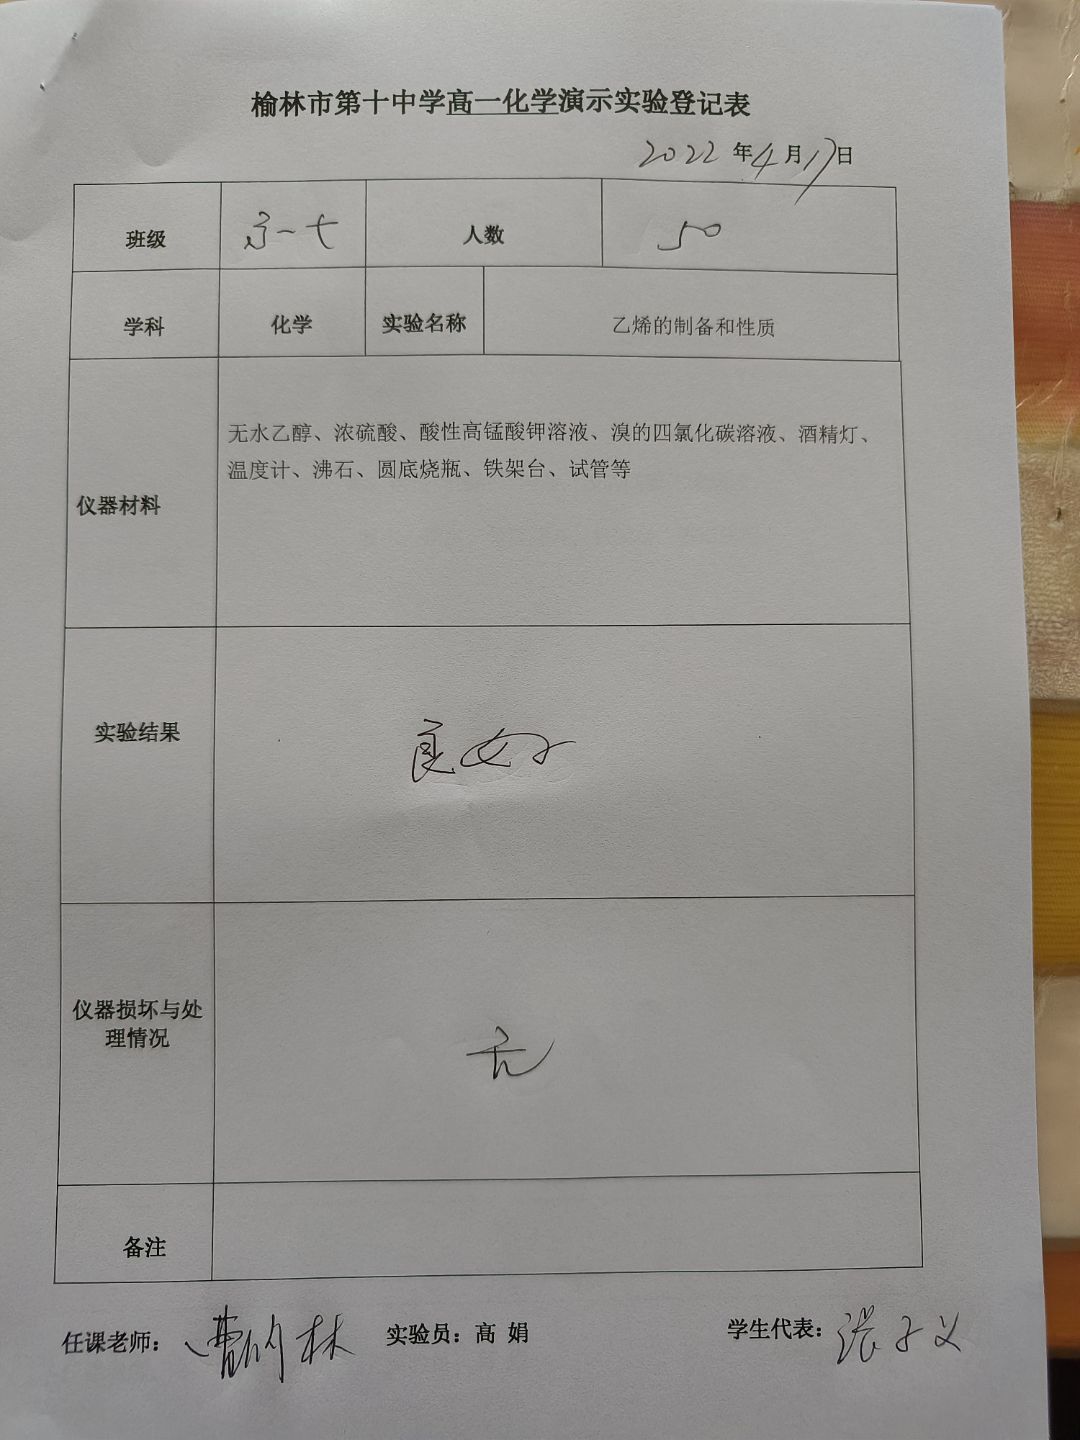 榆林市第十中学高一化学演示实验登记表
2022 年 4 月 17 日
班级 高一七 人数 50
学科 化学 实验名称 乙烯的制备和性质
仪器材料
无水乙醇、浓硫酸、酸性高锰酸钾溶液、溴的四氯化碳溶液、酒精灯、
温度计、沸石、圆底烧瓶、铁架台、试管等
实验结果 良好
仪器损坏与处
理情况
无
备注
任课老师: 曹 林 实验员: 高 娟 学生代表: 张子义